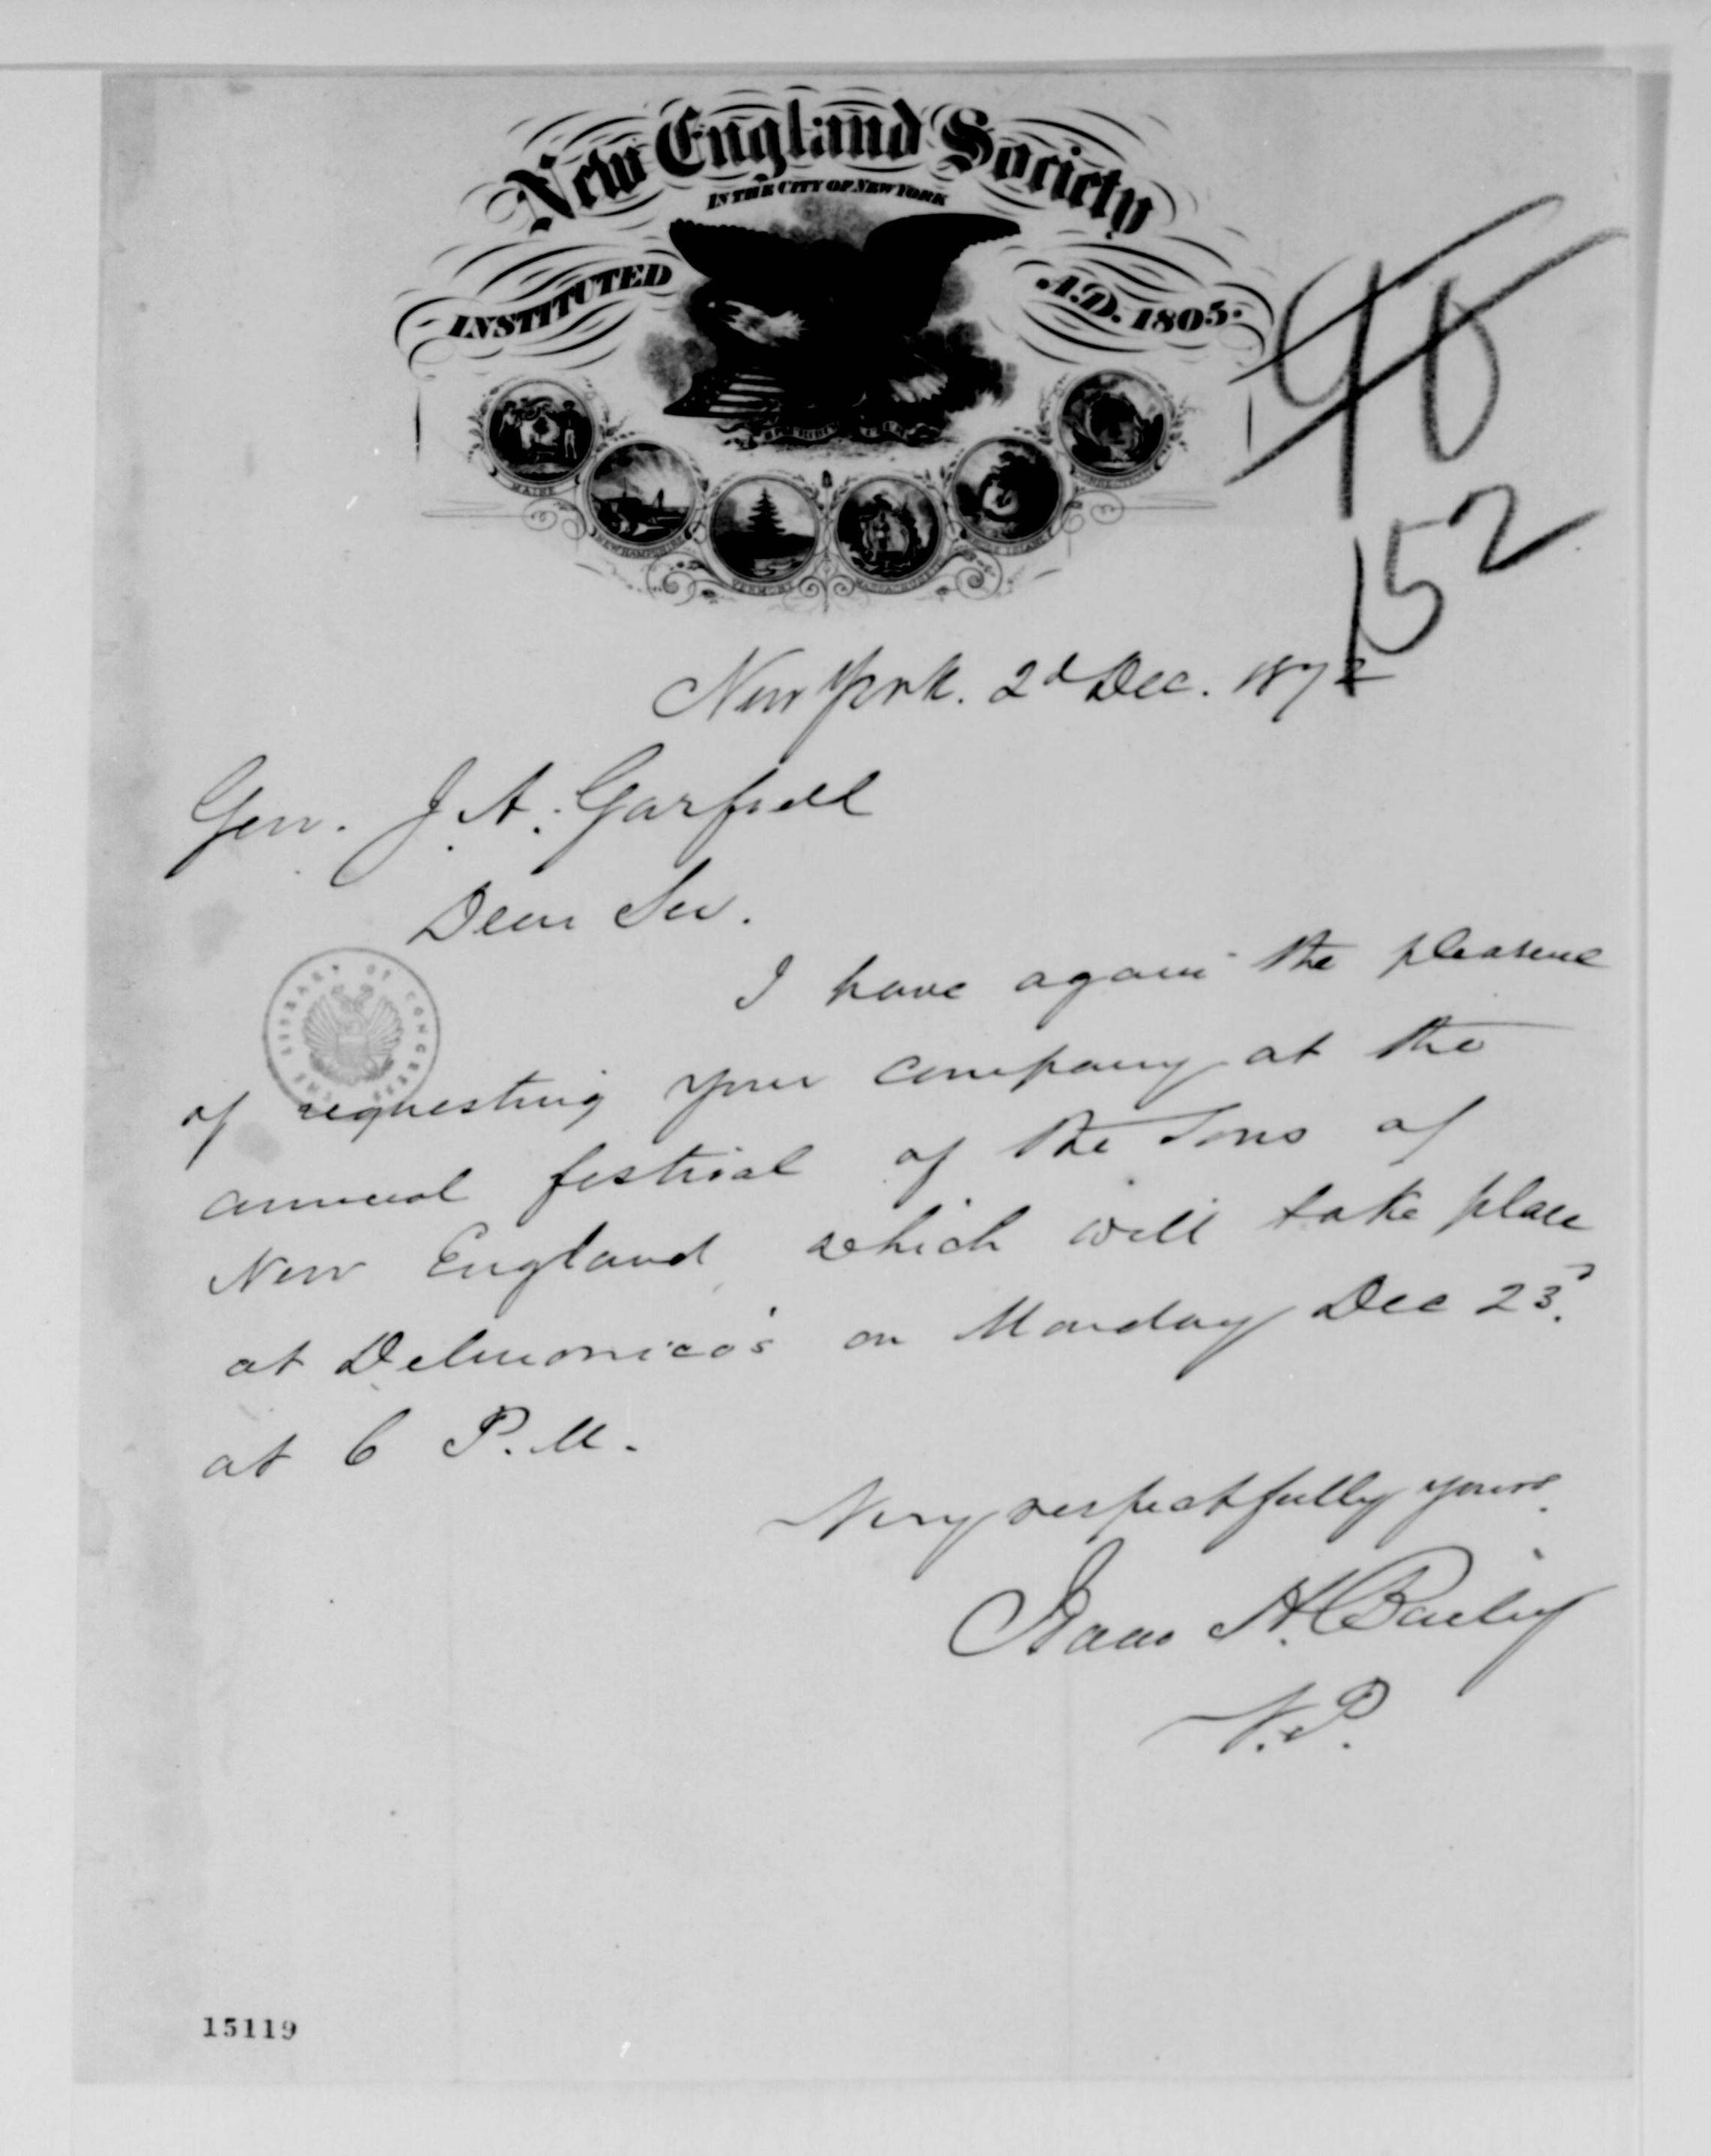 New England Society
IN THE CITY OF NEW YORK
INSTITUTED A.D. 1805.
E PLURIBUS UNUM
MAINE
NEW HAMPSHIRE
VERMONT
MASSACHUSETTS
RHODE ISLAND
CONNECTICUT
152
New York. 2d Dec. 1872
Gen. J. A. Garfield
Dear Sir.
I have again the pleasure
of requesting your company at the
annual festival of the Sons of
New England which will take place
at Delmonico's on Monday Dec 23d.
at 6 P.M.
Very respectfully yours.
Isaac H. Bailey
V.P.
THE LIBRARY OF CONGRESS
15119